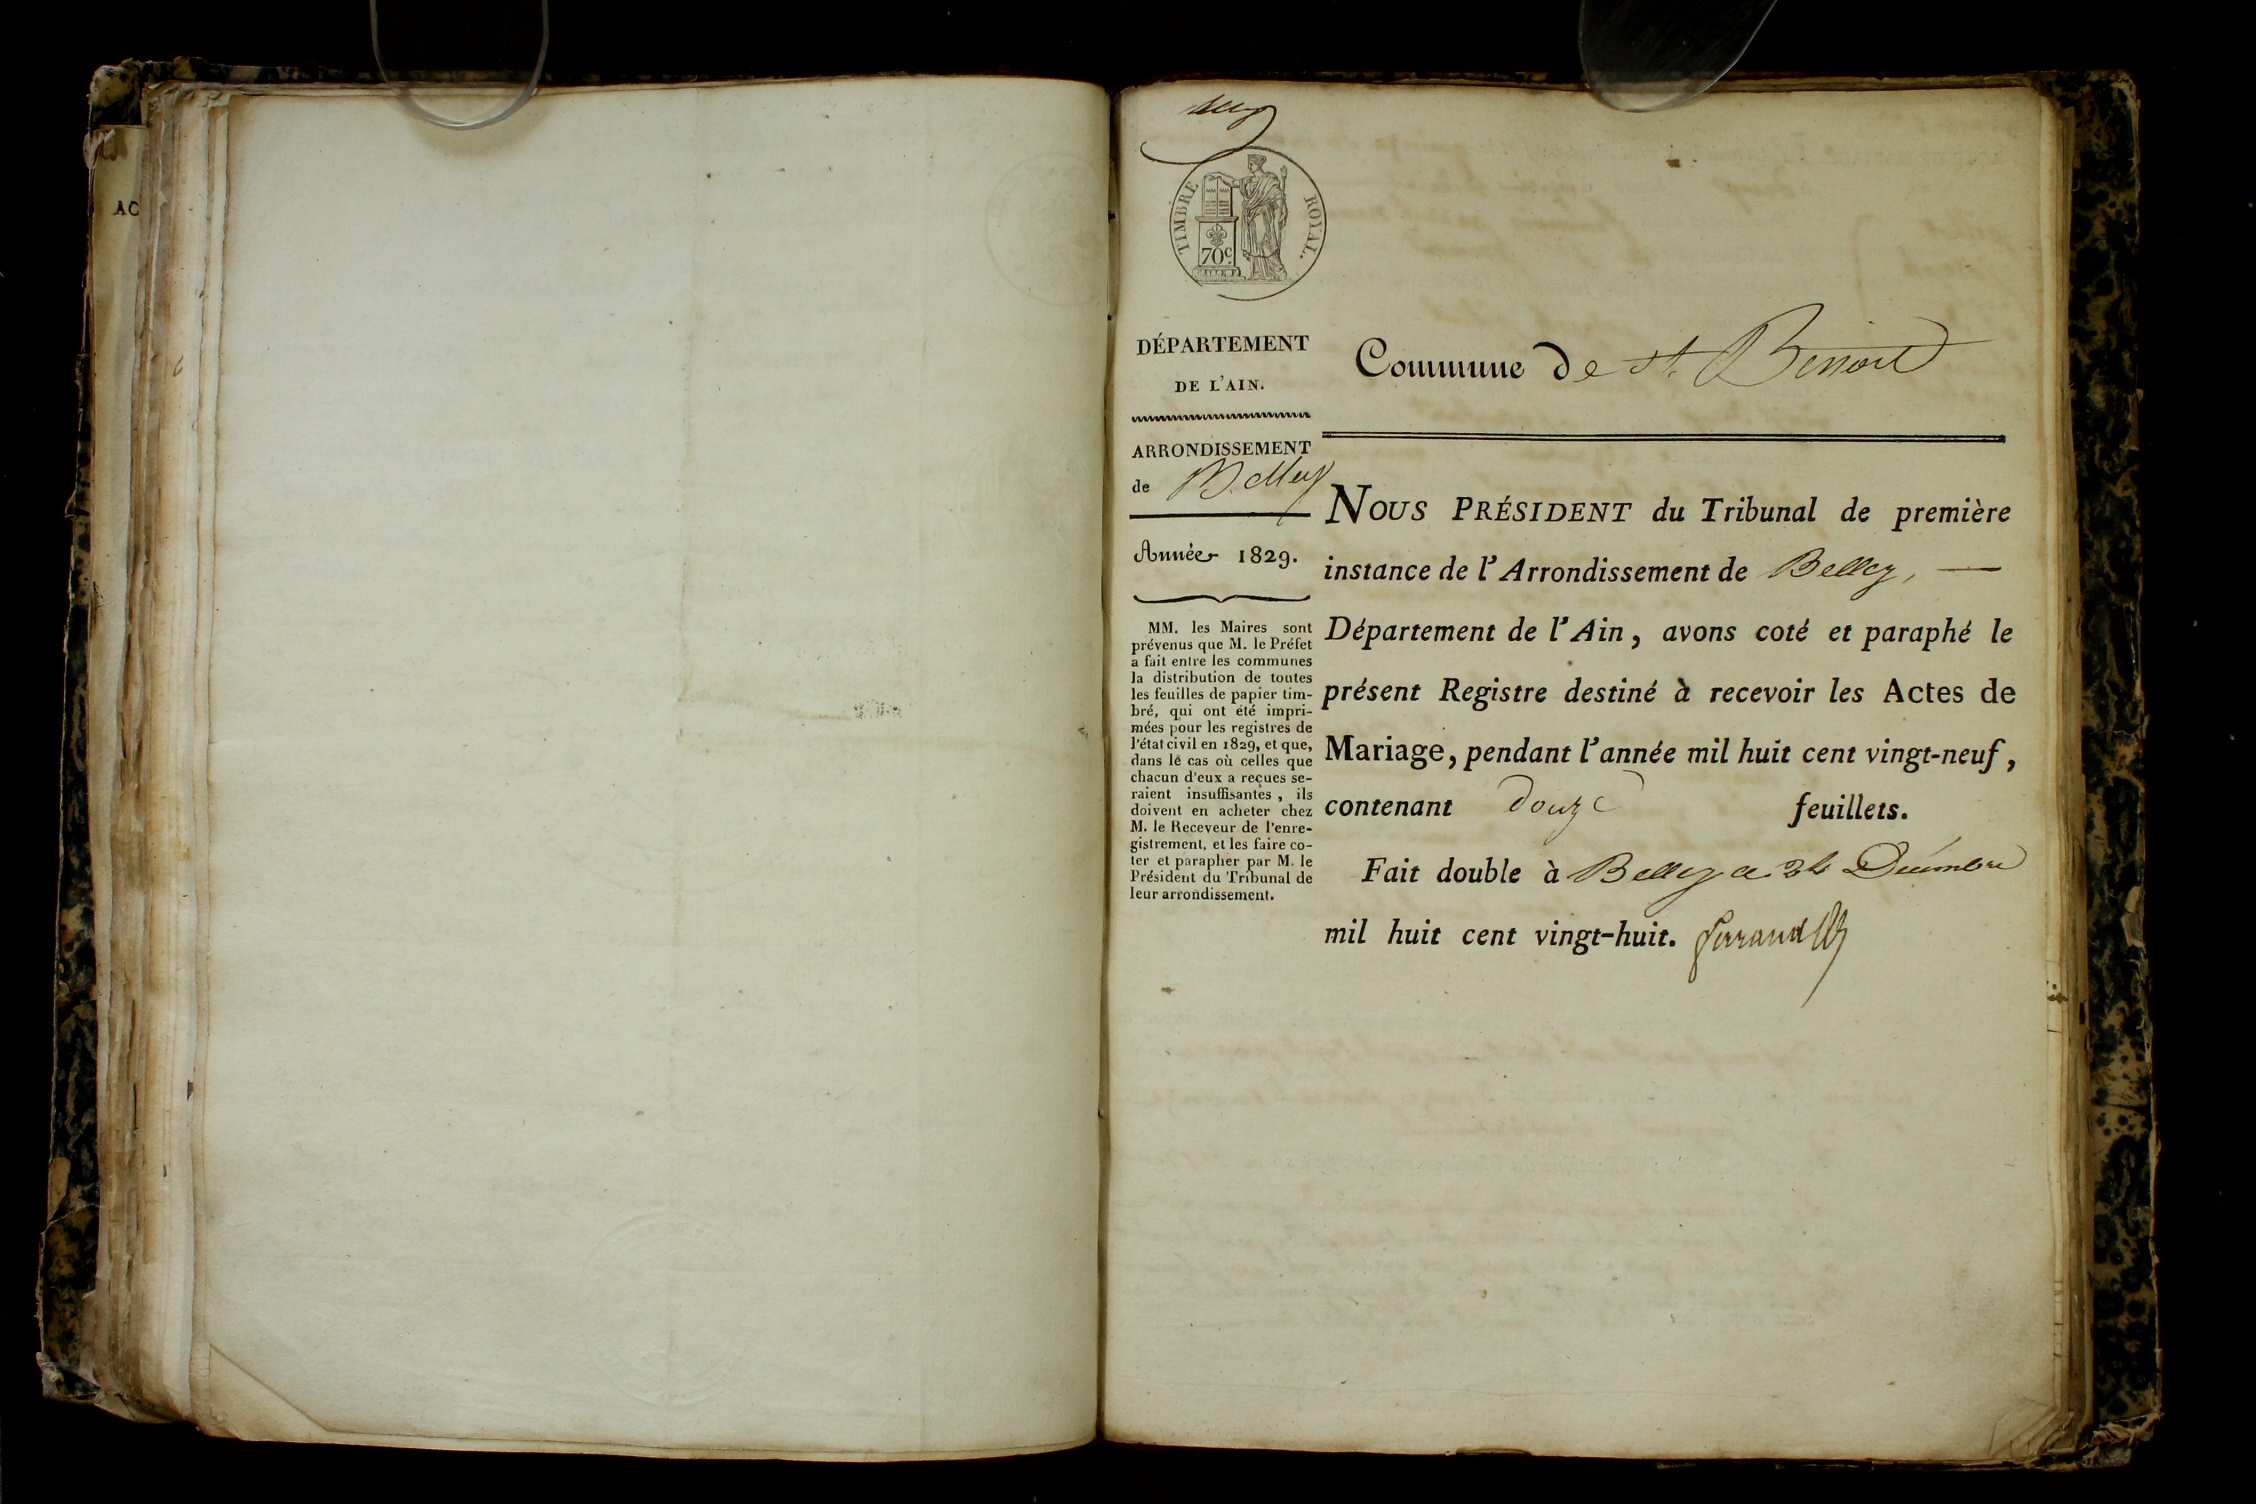 AC
TIMBRE ROYAL.
70c.
DÉPARTEMENT
DE L'AIN.
ARRONDISSEMENT
de Belley
Année 1829.
MM. les Maires sont
prévenus que M. le Préfet
a fait entre les communes
la distribution de toutes
les feuilles de papier tim-
bré, qui ont été impri-
mées pour les registres de
l'état civil en 1829, et que,
dans le cas où celles que
chacun d'eux a reçues se-
raient insuffisantes, ils
doivent en acheter chez
M. le Receveur de l'enre-
gistrement, et les faire co-
ter et parapher par M. le
Président du Tribunal de
leur arrondissement.
Commune de St. Benoit
NOUS PRÉSIDENT du Tribunal de première
instance de l'Arrondissement de Belley, —
Département de l'Ain, avons coté et paraphé le
présent Registre destiné à recevoir les Actes de
Mariage, pendant l'année mil huit cent vingt-neuf,
contenant douze feuillets.
Fait double à Belley ce Décembre
mil huit cent vingt-huit.